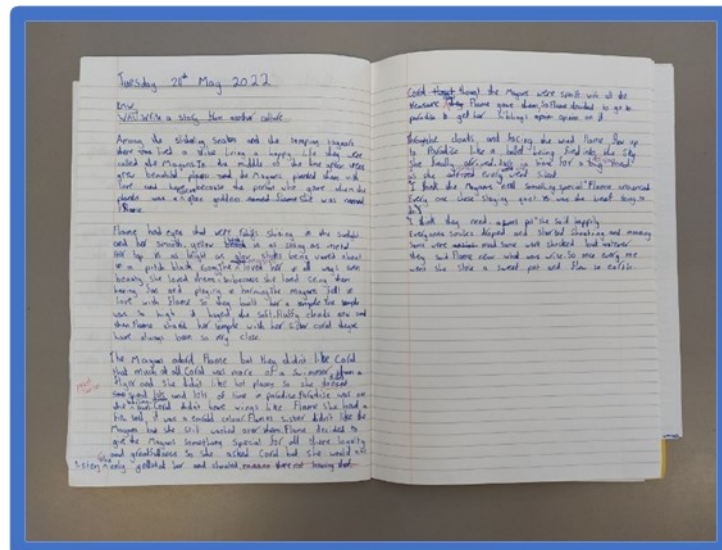 Tuesday 24th May 2022
Know
Write a story from another culture
Among the slithering snakes and the jumping jaguars
there was lived a tribe living a happy life they were
called the Mayans. In the middle of the
grew beautiful plants and the Mayans planted them with
love and because the person who gave them the
plants was a goddess named Flame. She was named
Flame.
Flame had eyes that were shining in the sunlight
and her smooth, yellow is as shiny as metal
Her is as bright as glow sticks being waved about
in a pitch black room. loved her in all ways even
beauty she loved them because she loved seeing them
having fun and playing in harmony. The Mayans fell in
love with Flame so they built her a temple. The temple
was so high it the soft, fluffy clouds now and
then Flame shared her temple with her sister Coral they
have always been so very close.
The Mayans adored Flame but they didn't like Coral
that much at all. Coral was more of a swimmer than a
flyer and she didn't like hot places so she
spend lots and lots of time in paradise. Paradise was on
the Coral didn't have wings like Flame she had a
tail, it was a colour. Flames sister didn't like the
Mayans but she still watched over them. Flame decided to
give the Mayans something special for all there loyalty
and greatfullness so she asked Coral but she would not
listen only at her and shouted, there not having that.
Coral thought the Mayans were spoilt with all the
treasure Flame gave them, so Flame decided to go to
paradise to get her siblings opinion on it
the clouds and facing the wind Flame flew up
to Paradise like a bullet being fired into the sky
She finally arrived, in time for a feast
as she every went silent
"I think the Mayans need something special" Flame announced
Every one chose staying quiet was the best thing to
do.
"I think they need a pot" she said happily
Everyones smiles dropped and started shouting and moaning
some were mad some were shocked but whatever
they said Flame knew what was wise. So once every one
went she stole a sweet pot and flew to earth.